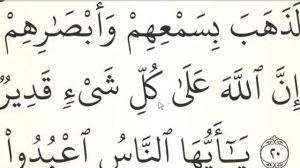 لَذَهَبَ بِسَمْعِهِمْ وَأَبْصَٰرِهِمْ
إِنَّ ٱللَّهَ عَلَىٰ كُلِّ شَىْءٍ قَدِيرٌ
٢٠ يَـٰٓأَيُّهَا ٱلنَّاسُ ٱعْبُدُوا۟